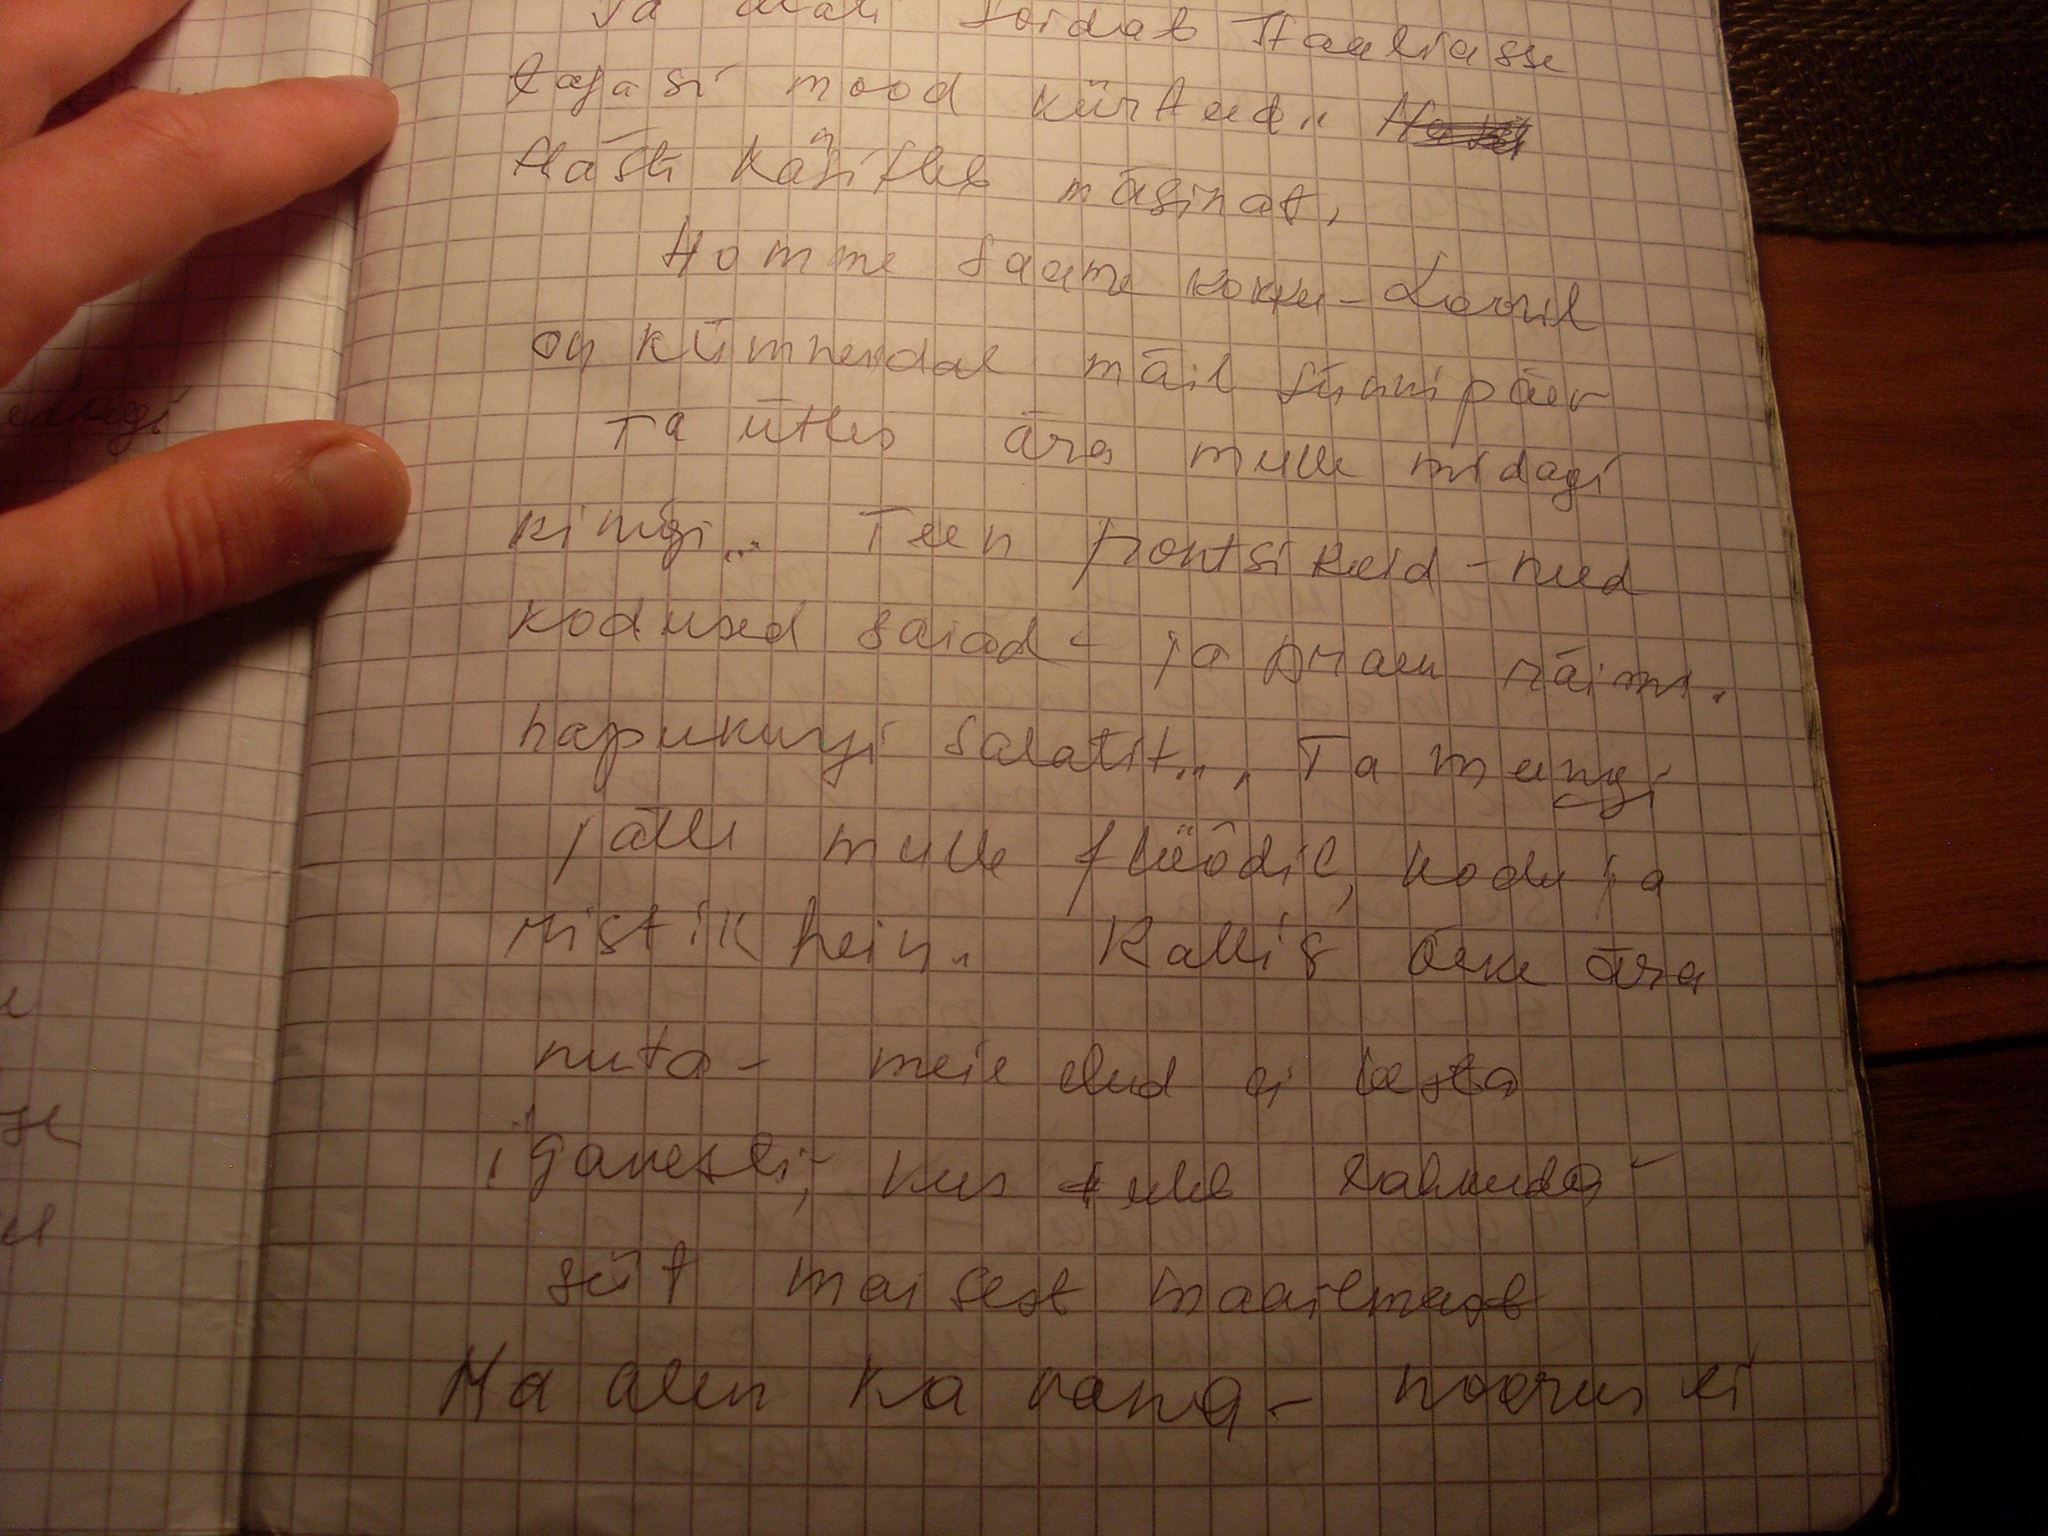 Ta sõidab Itaaliasse
tagasi mood kiirteed..
Hästi käsitleb masinat,
Homme saame kokku - Lauril
on kümnendal mail sünnipäev
Ta ütles ära mulle midagi
kingi... Teen pontsikeid - need
kodused saiad - ja praen räimi.
hapukurgi salatit.... Ta mängi
jälle mulle flöödil, kodu ja
ristik hein.. Kallis õeke ära
nuta - meie elud ei kesta
iganesti, kus tuleb lahkuda -
siit maisest maailmast
Ma olen ka vana - noorus ei